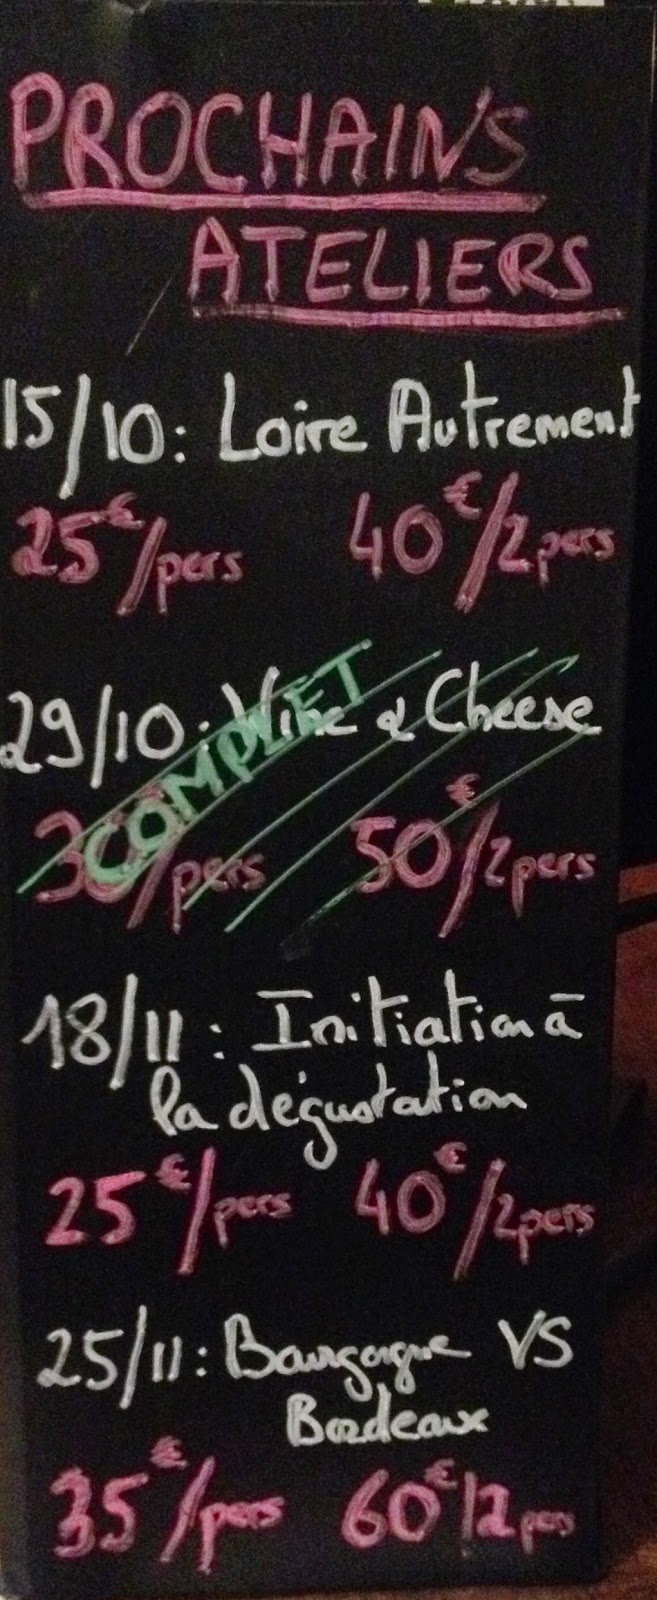 PROCHAINS
ATELIERS
15/10: Loire Autrement
25€/pers 40€/2pers
29/10: Wine & Cheese
COMPLET
30/pers 50€/2pers
18/11: Initiation à
la dégustation
25€/pers 40€/2pers
25/11: Bourgogne VS
Bordeaux
35€/pers 60€/2pers